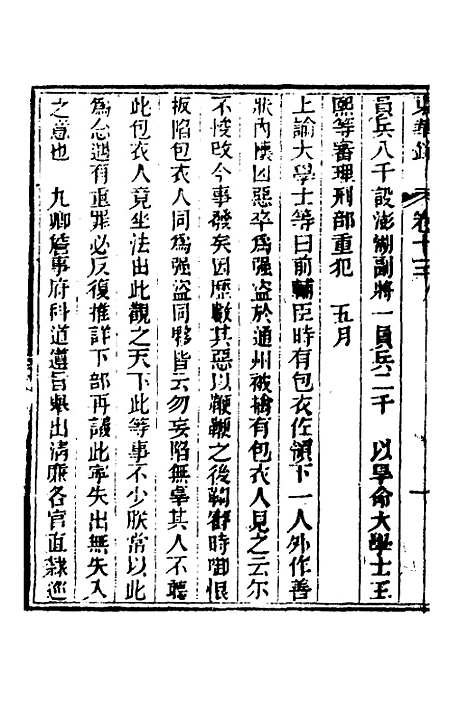 東華錄 卷十三
員兵八千設澎湖副將一員兵二千　以學命大學士王
熙等審理刑部重犯　五月
上諭大學士等曰前輔臣時有包衣佐領下一人外作善
狀內懷凶惡卒為强盜於通州被擒有包衣人見之云尔
不悛改今事發矣因歷數其惡以鞭鞭之後鞫審時啣恨
扳陷包衣人同為强盜同夥皆云勿妄陷無辜其人不聽
此包衣人竟坐法出此觀之天下此等事不少朕常以此
為念遇有重罪必反復推詳下部再議此寧失出無失入
之意也　九卿詹事府科道遵旨舉出淸廉各官直隸巡